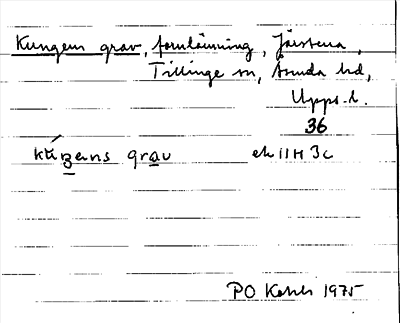 Kungens grav, fornlämning, Järstena,
Tillinge sn, Åsunda hd,
Upps. l.
36
grav ek 11H 3c
PO Kehls 1975